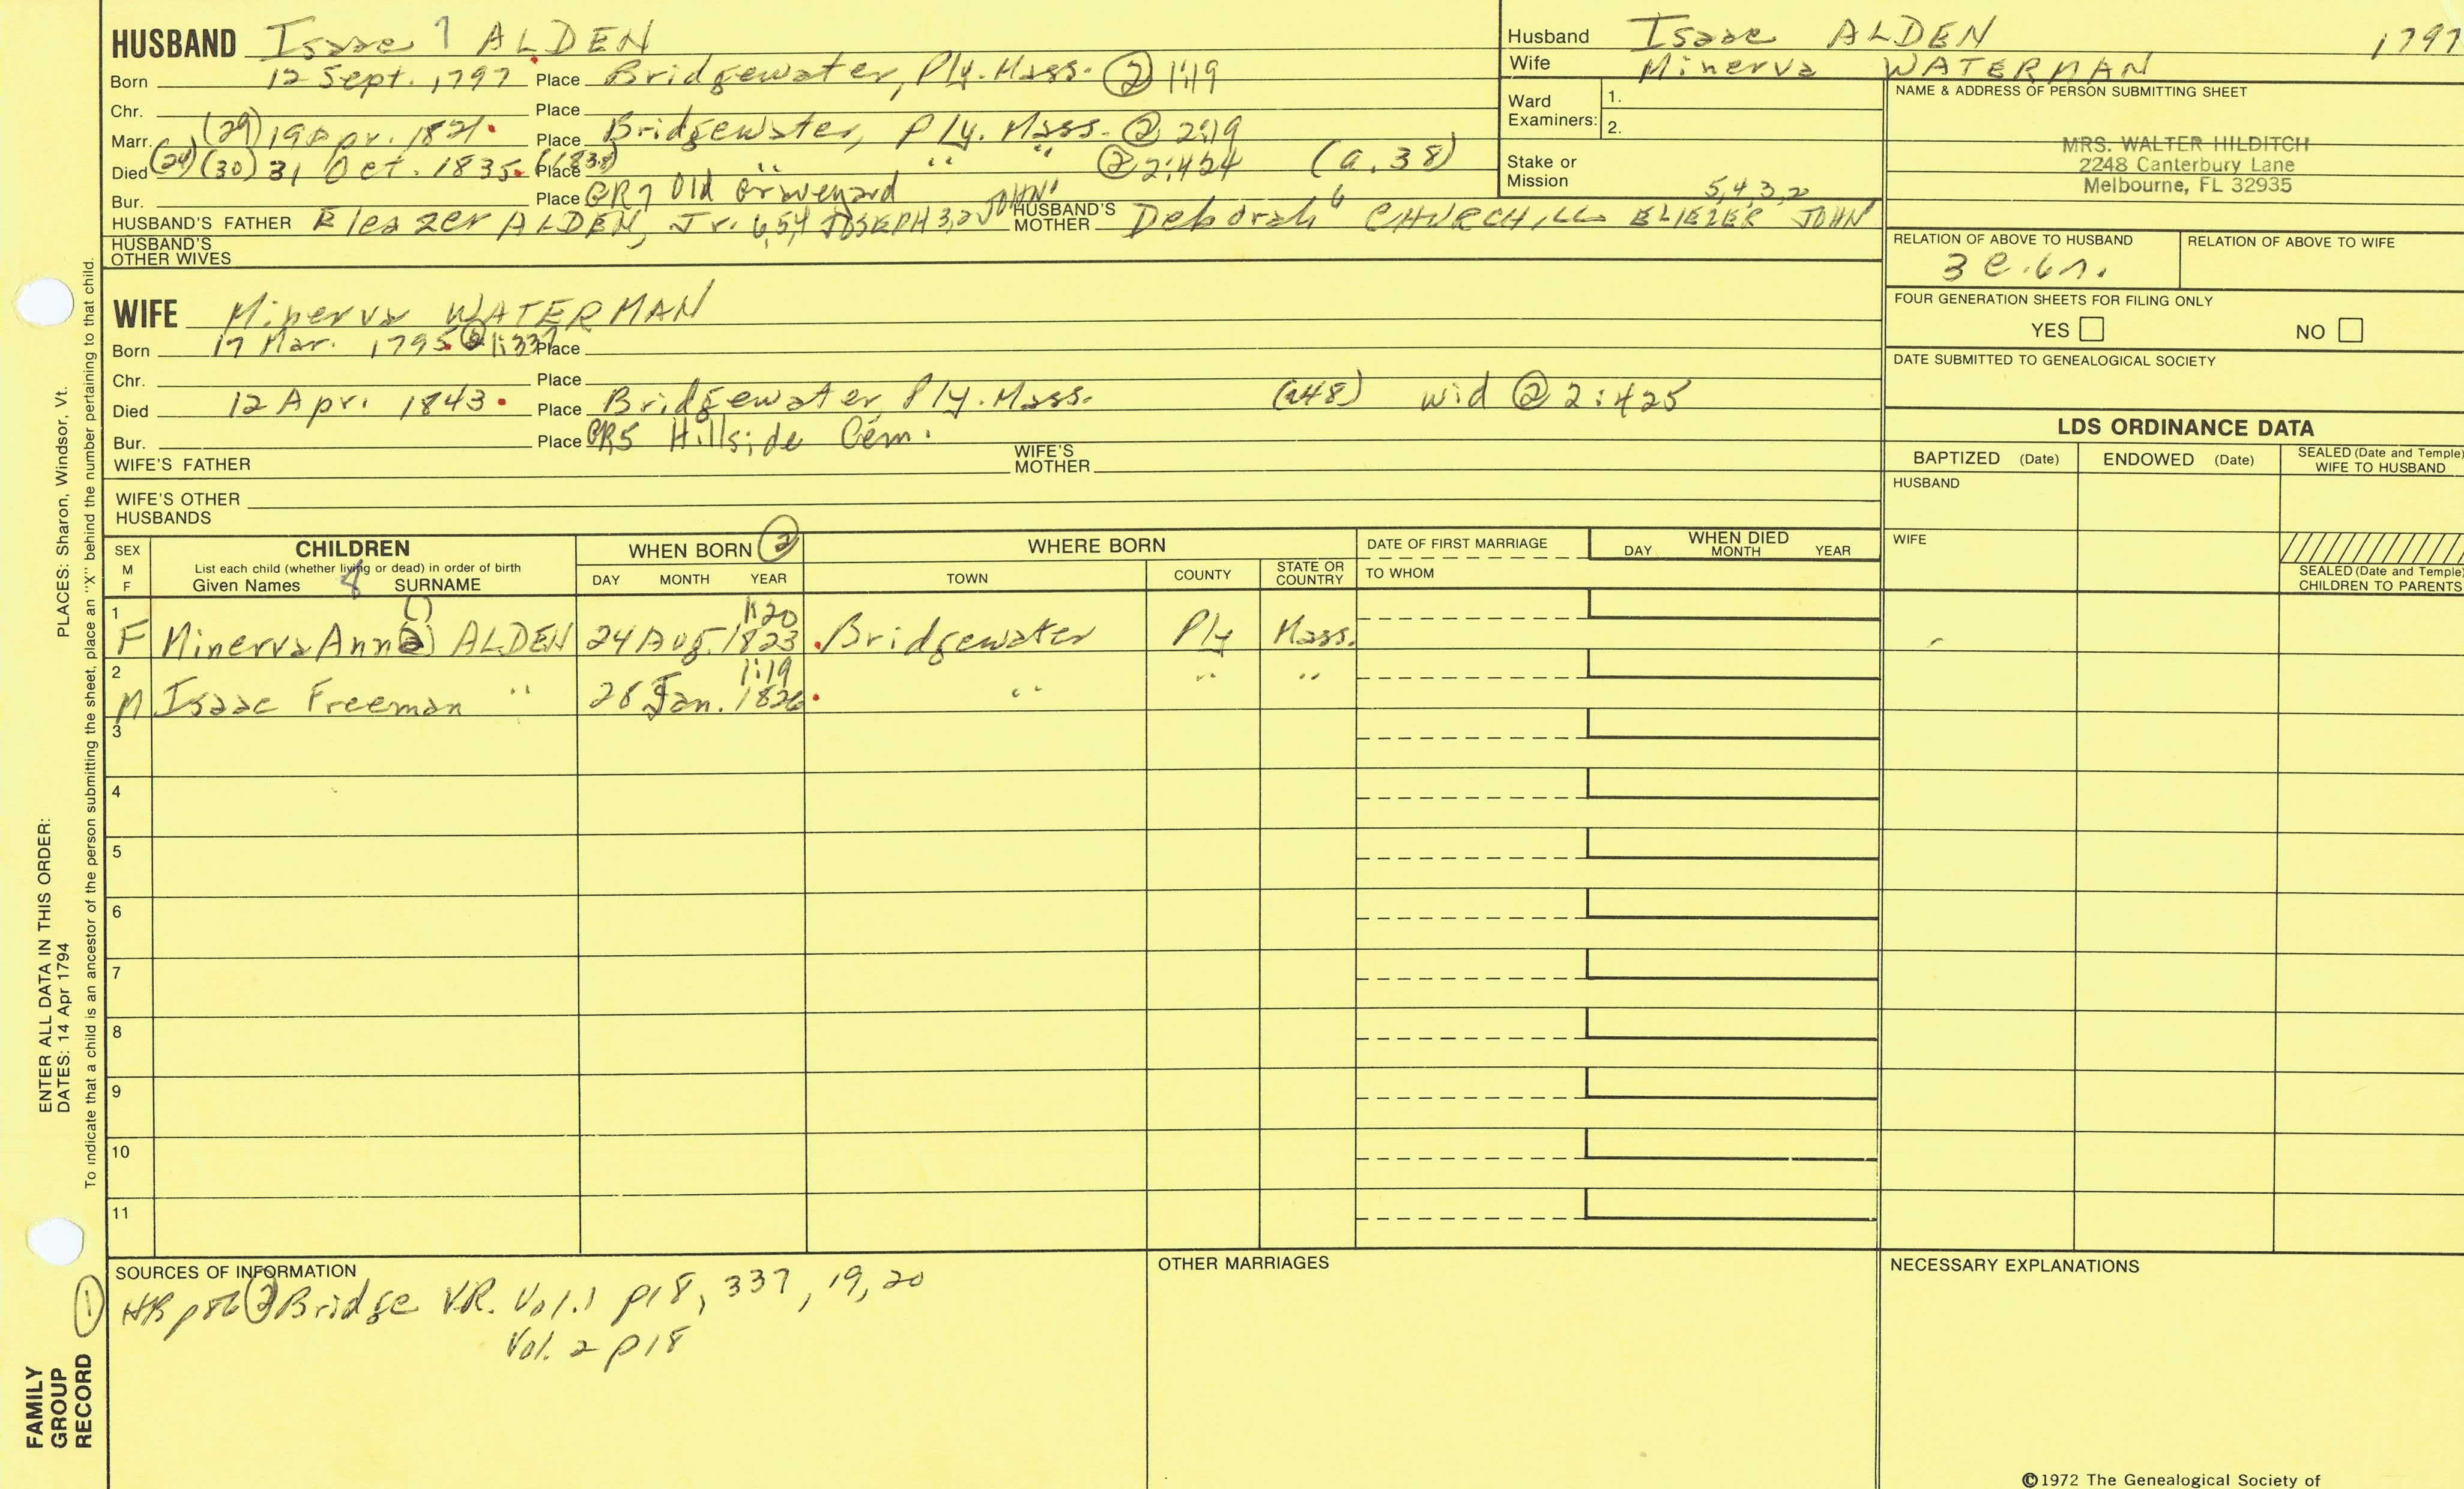 HUSBAND Isaac 7 ALDEN
Born 12 Sept. 1797 Place Bridgewater, Ply. Mass. ② 1:19
Chr. Place
Marr. (29) 19 Apr. 1821. Place Bridgewater, Ply. Mass. ② 2:19
Died (24) (30) 31 Oct. 1835. (1838) Place " " " ② 2:424 (a.38)
Bur. Place GR7 Old Graveyard
HUSBAND'S FATHER Eleazer ALDEN, Jr. 6,5,4 JOSEPH 3,2 JOHN1 HUSBAND'S MOTHER Deborah 6 CHURCHILL ELIEZER 5,4,3,2 JOHN
HUSBAND'S OTHER WIVES
Husband Isaac ALDEN 1797
Wife Minerva WATERMAN
Ward Examiners: 1.
2.
Stake or Mission
NAME & ADDRESS OF PERSON SUBMITTING SHEET
MRS. WALTER HILDITCH
2248 Canterbury Lane
Melbourne, FL 32935
RELATION OF ABOVE TO HUSBAND RELATION OF ABOVE TO WIFE
3 c.6r.
FOUR GENERATION SHEETS FOR FILING ONLY
YES NO
DATE SUBMITTED TO GENEALOGICAL SOCIETY
WIFE Minerva WATERMAN
Born 17 Mar. 1795. ② 1:337 Place
Chr. Place
Died 12 Apr. 1843. Place Bridgewater, Ply. Mass. (a48) wid ② 2:425
Bur. Place GR5 Hillside Cem.
WIFE'S FATHER WIFE'S MOTHER
WIFE'S OTHER HUSBANDS
LDS ORDINANCE DATA
BAPTIZED (Date) ENDOWED (Date) SEALED (Date and Temple) WIFE TO HUSBAND
HUSBAND
WIFE
SEALED (Date and Temple) CHILDREN TO PARENTS
SEX M F
CHILDREN
List each child (whether living or dead) in order of birth
Given Names 8 SURNAME
WHEN BORN ②
DAY MONTH YEAR
WHERE BORN
TOWN COUNTY STATE OR COUNTRY
DATE OF FIRST MARRIAGE
TO WHOM
WHEN DIED
DAY MONTH YEAR
1 F Minerva Ann(a) ALDEN 24 Aug. 1823. 1:20 Bridgewater Ply Mass.
2 M Isaac Freeman " 28 Jan. 1826. 1:19 " " "
3
4
5
6
7
8
9
10
11
SOURCES OF INFORMATION
① HB p86 ② Bridge V.R. Vol.1 p18, 337, 19, 20
Vol. 2 p18
OTHER MARRIAGES
NECESSARY EXPLANATIONS
©1972 The Genealogical Society of
ENTER ALL DATA IN THIS ORDER:
DATES: 14 Apr 1794
PLACES: Sharon, Windsor, Vt.
To indicate that a child is an ancestor of the person submitting the sheet, place an "X" behind the number pertaining to that child.
FAMILY GROUP RECORD